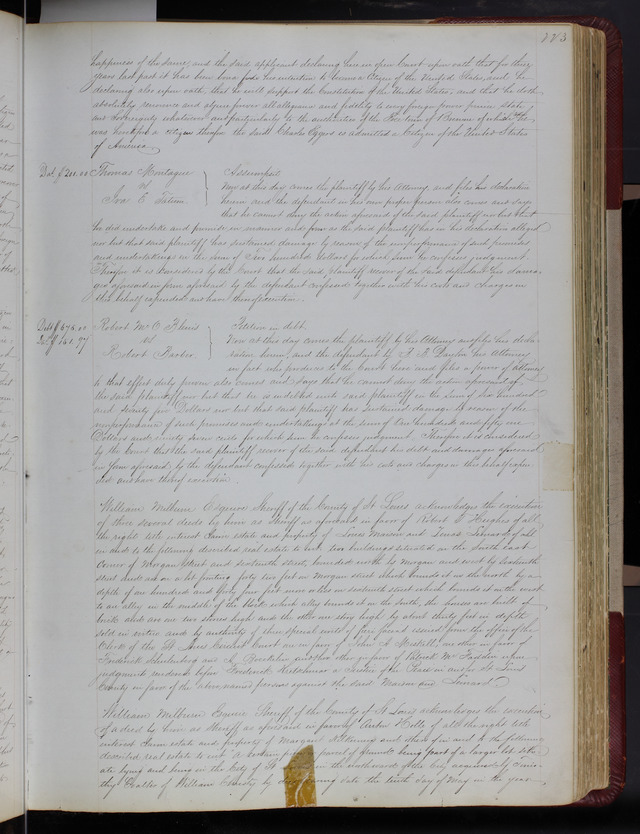 223
happiness of the same, and the said applicant declaring here in open Court upon oath that for three
years last past it has been bona fide his intention to become a Citizen of the United States, and he
declaring also upon oath, that he will support the Constitution of the United States, and that he doth
absolutely renounce and abjure forever all allegiance and fidelity to every foreign power, prince, state
and sovereignty whatsoever and particularly to the authorities of the Free town of Bremen of which he
was heretofore a citizen therefore the said Charles is admitted a Citizen of the United States
of America.
Dad. $200.00 Thomas Montague Assumpsit
vs Now at this day comes the plaintiff by his Attorney, and files his declaration
Ira E. Tatum herein and the defendant in his own proper person also comes and says
that he cannot deny the action aforesaid of the said plaintiff nor but that
he did undertake and promise in manner and form as the said plaintiff has in his declaration alleged
nor but that said plaintiff has sustained damage by reason of the nonperformance of such promises
and undertakings in the sum of Two hundred dollars for which sum he confesses judgment
Therefore it is considered by the Court that the said plaintiff recover of the said defendant his dama-
ges aforesaid in form aforesaid by the defendant confessed together with his costs and charges in
this behalf expended and have therefor execution.
Debt $670.00 Robert M. O. Petition in debt.
151.97 vs Now at this day comes the plaintiff by his Attorney and files his decla-
Robert Barker ration herein, and the defendant by his Attorney
in fact who produces to the Court here and files a power of attorney
to that effect duly proven also comes and says that he cannot deny the action aforesaid of
the said plaintiff nor but that he is indebted unto said plaintiff in the sum of Six hundred
and seventy Dollars nor but that said plaintiff has sustained damage by reason of the
nonperformance of such promises and undertakings at the sum of One hundred and fifty one
Dollars and ninety seven cents for which sum he confesses judgment. Therefore it is considered
by the Court that the said plaintiff recover of the said defendant his debt and damages aforesaid
in form aforesaid by the defendant confessed together with his costs and charges in this behalf expen-
ded and have therefor execution.
William Milburn Esquire Sheriff of the County of St Louis acknowledges the execution
of three several deeds by him as Sheriff as aforesaid in favor of Robert C. Hughes of all
the right title interest claim estate and property of Louis Marion and of all
in and to the following described real estate to wit, two buildings situated on the South East
Corner of Morgan Street and Sixteenth street, bounded north by Morgan and west by Sixteenth
street and on a lot fronting forty two feet on Morgan street which bounds it on the North by a
depth of one hundred and feet more or less on Sixteenth street which bounds it on the west
to an alley in the middle of the Block which alley bounds it on the South, the houses are built of
brick and are one two stories high and the other one story high by about thirty feet in depth
sold in entire and by authority of three special writs of fieri facias issued from the office of the
Clerk of the St Louis Circuit Court one in favor of John A. another in favor of
Frederick and A. and the other in favor of Patrick upon
judgments rendered before Frederick Justice of the Peace in and for St Louis
County in favor of the above named persons against the said Marion and
William Milburn Esquire Sheriff of the County of St Louis acknowledges the execution
of a deed by him as Sheriff as aforesaid in favor of of all the right title
interest claim estate and property of Margaret and in and to the following
described real estate to wit, a certain parcel of ground being part of a larger lot situ-
ate lying and being in the City of St in the north ward of the City
of William by bearing date the tenth day of May in the year